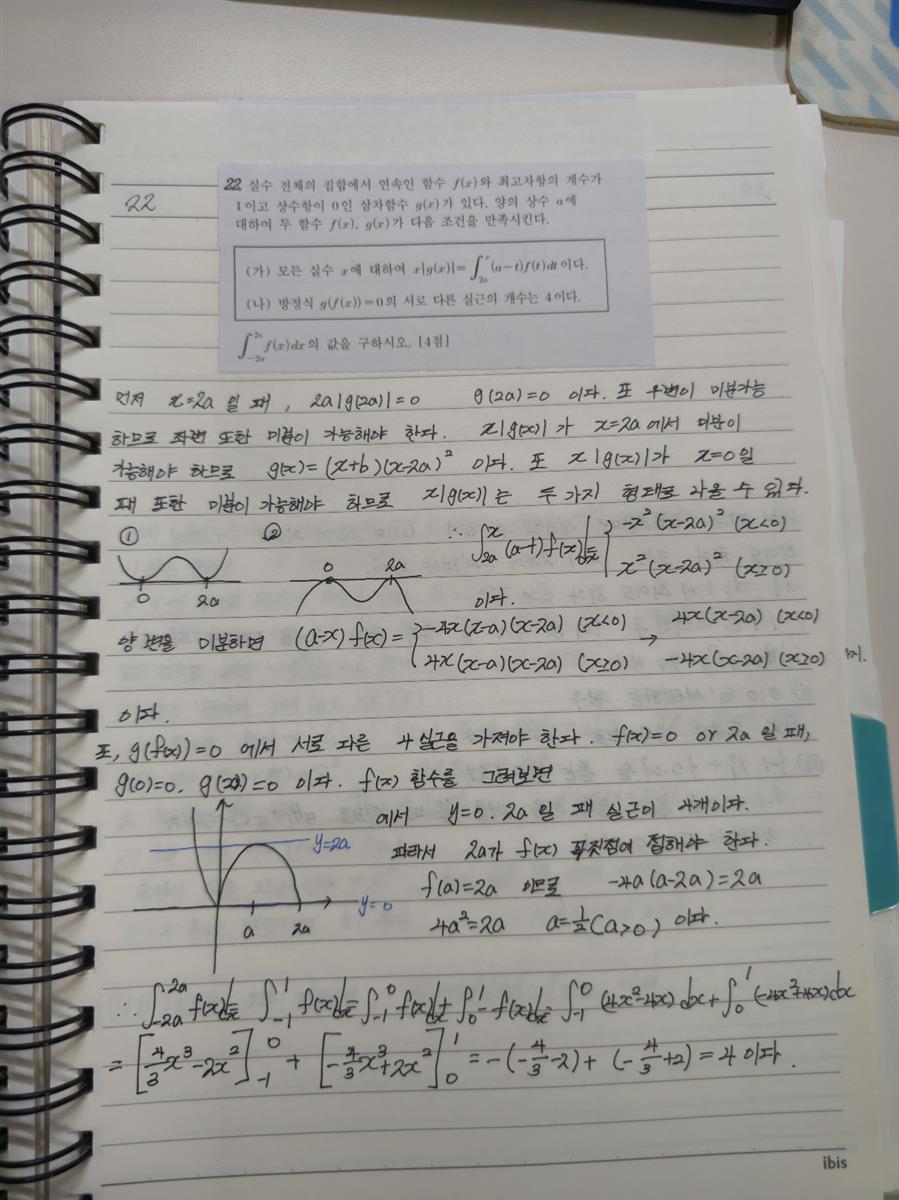 22
22. 실수 전체의 집합에서 연속인 함수 f(x)와 최고차항의 계수가
1이고 상수항이 0인 삼차함수 g(x)가 있다. 양의 상수 a에
대하여 두 함수 f(x), g(x)가 다음 조건을 만족시킨다.
(가) 모든 실수 x에 대하여 x|g(x)|=∫_{2a}^{x}(a-t)f(t)dt이다.
(나) 방정식 g(f(x))=0의 서로 다른 실근의 개수는 4이다.
∫_{-2a}^{2a}f(x)dx의 값을 구하시오. [4점]
먼저 x=2a 일 때, 2a|g(2a)|=0 g(2a)=0 이다. 또 우변이 미분가능
하므로 좌변 또한 미분이 가능해야 한다. x|g(x)|가 x=2a에서 미분이
가능해야 하므로 g(x)=(x+b)(x-2a)² 이다. 또 x|g(x)|가 x=0일
때 또한 미분이 가능해야 하므로 x|g(x)|는 두 가지 형태로 나올 수 있다.
① ② ∴ ∫_{2a}^{x}(a-t)f(x)dx { -x²(x-2a)² (x<0)
0 2a 0 2a x²(x-2a)² (x≥0)
이다.
양변을 미분하면 (a-x)f(x)= { -4x(x-a)(x-2a) (x<0) → 4x(x-2a) (x<0)
4x(x-a)(x-2a) (x≥0) -4x(x-2a) (x≥0)
이다.
또, g(f(x))=0 에서 서로 다른 4실근을 가져야 한다. f(x)=0 or 2a 일 때,
g(0)=0, g(2a)=0 이다. f(x) 함수를 그려보면
에서 y=0, 2a 일 때 실근이 4개이다.
y=2a 따라서 2a가 f(x) 꼭짓점에 접해야 한다.
f(a)=2a 이므로 -4a(a-2a)=2a
y=0
a 2a 4a²=2a a=1/2(a>0) 이다.
∴ ∫_{-2a}^{2a}f(x)dx= ∫_{-1}^{1}f(x)dx=∫_{-1}^{0}f(x)dx+∫_{0}^{1}-f(x)dx=∫_{-1}^{0}(4x²-4x)dx+∫_{0}^{1}(-4x²+4x)dx
=[4/3x³-2x²]_{-1}^{0}+[-4/3x³+2x²]_{0}^{1}=-(-4/3-2)+(-4/3+2)=4 이다.
ibis